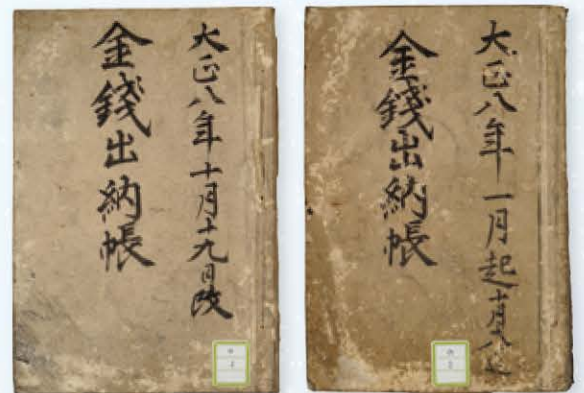 大正八年十月十九日改
金錢出納帳
大正八年一月起十月十八迄
金錢出納帳